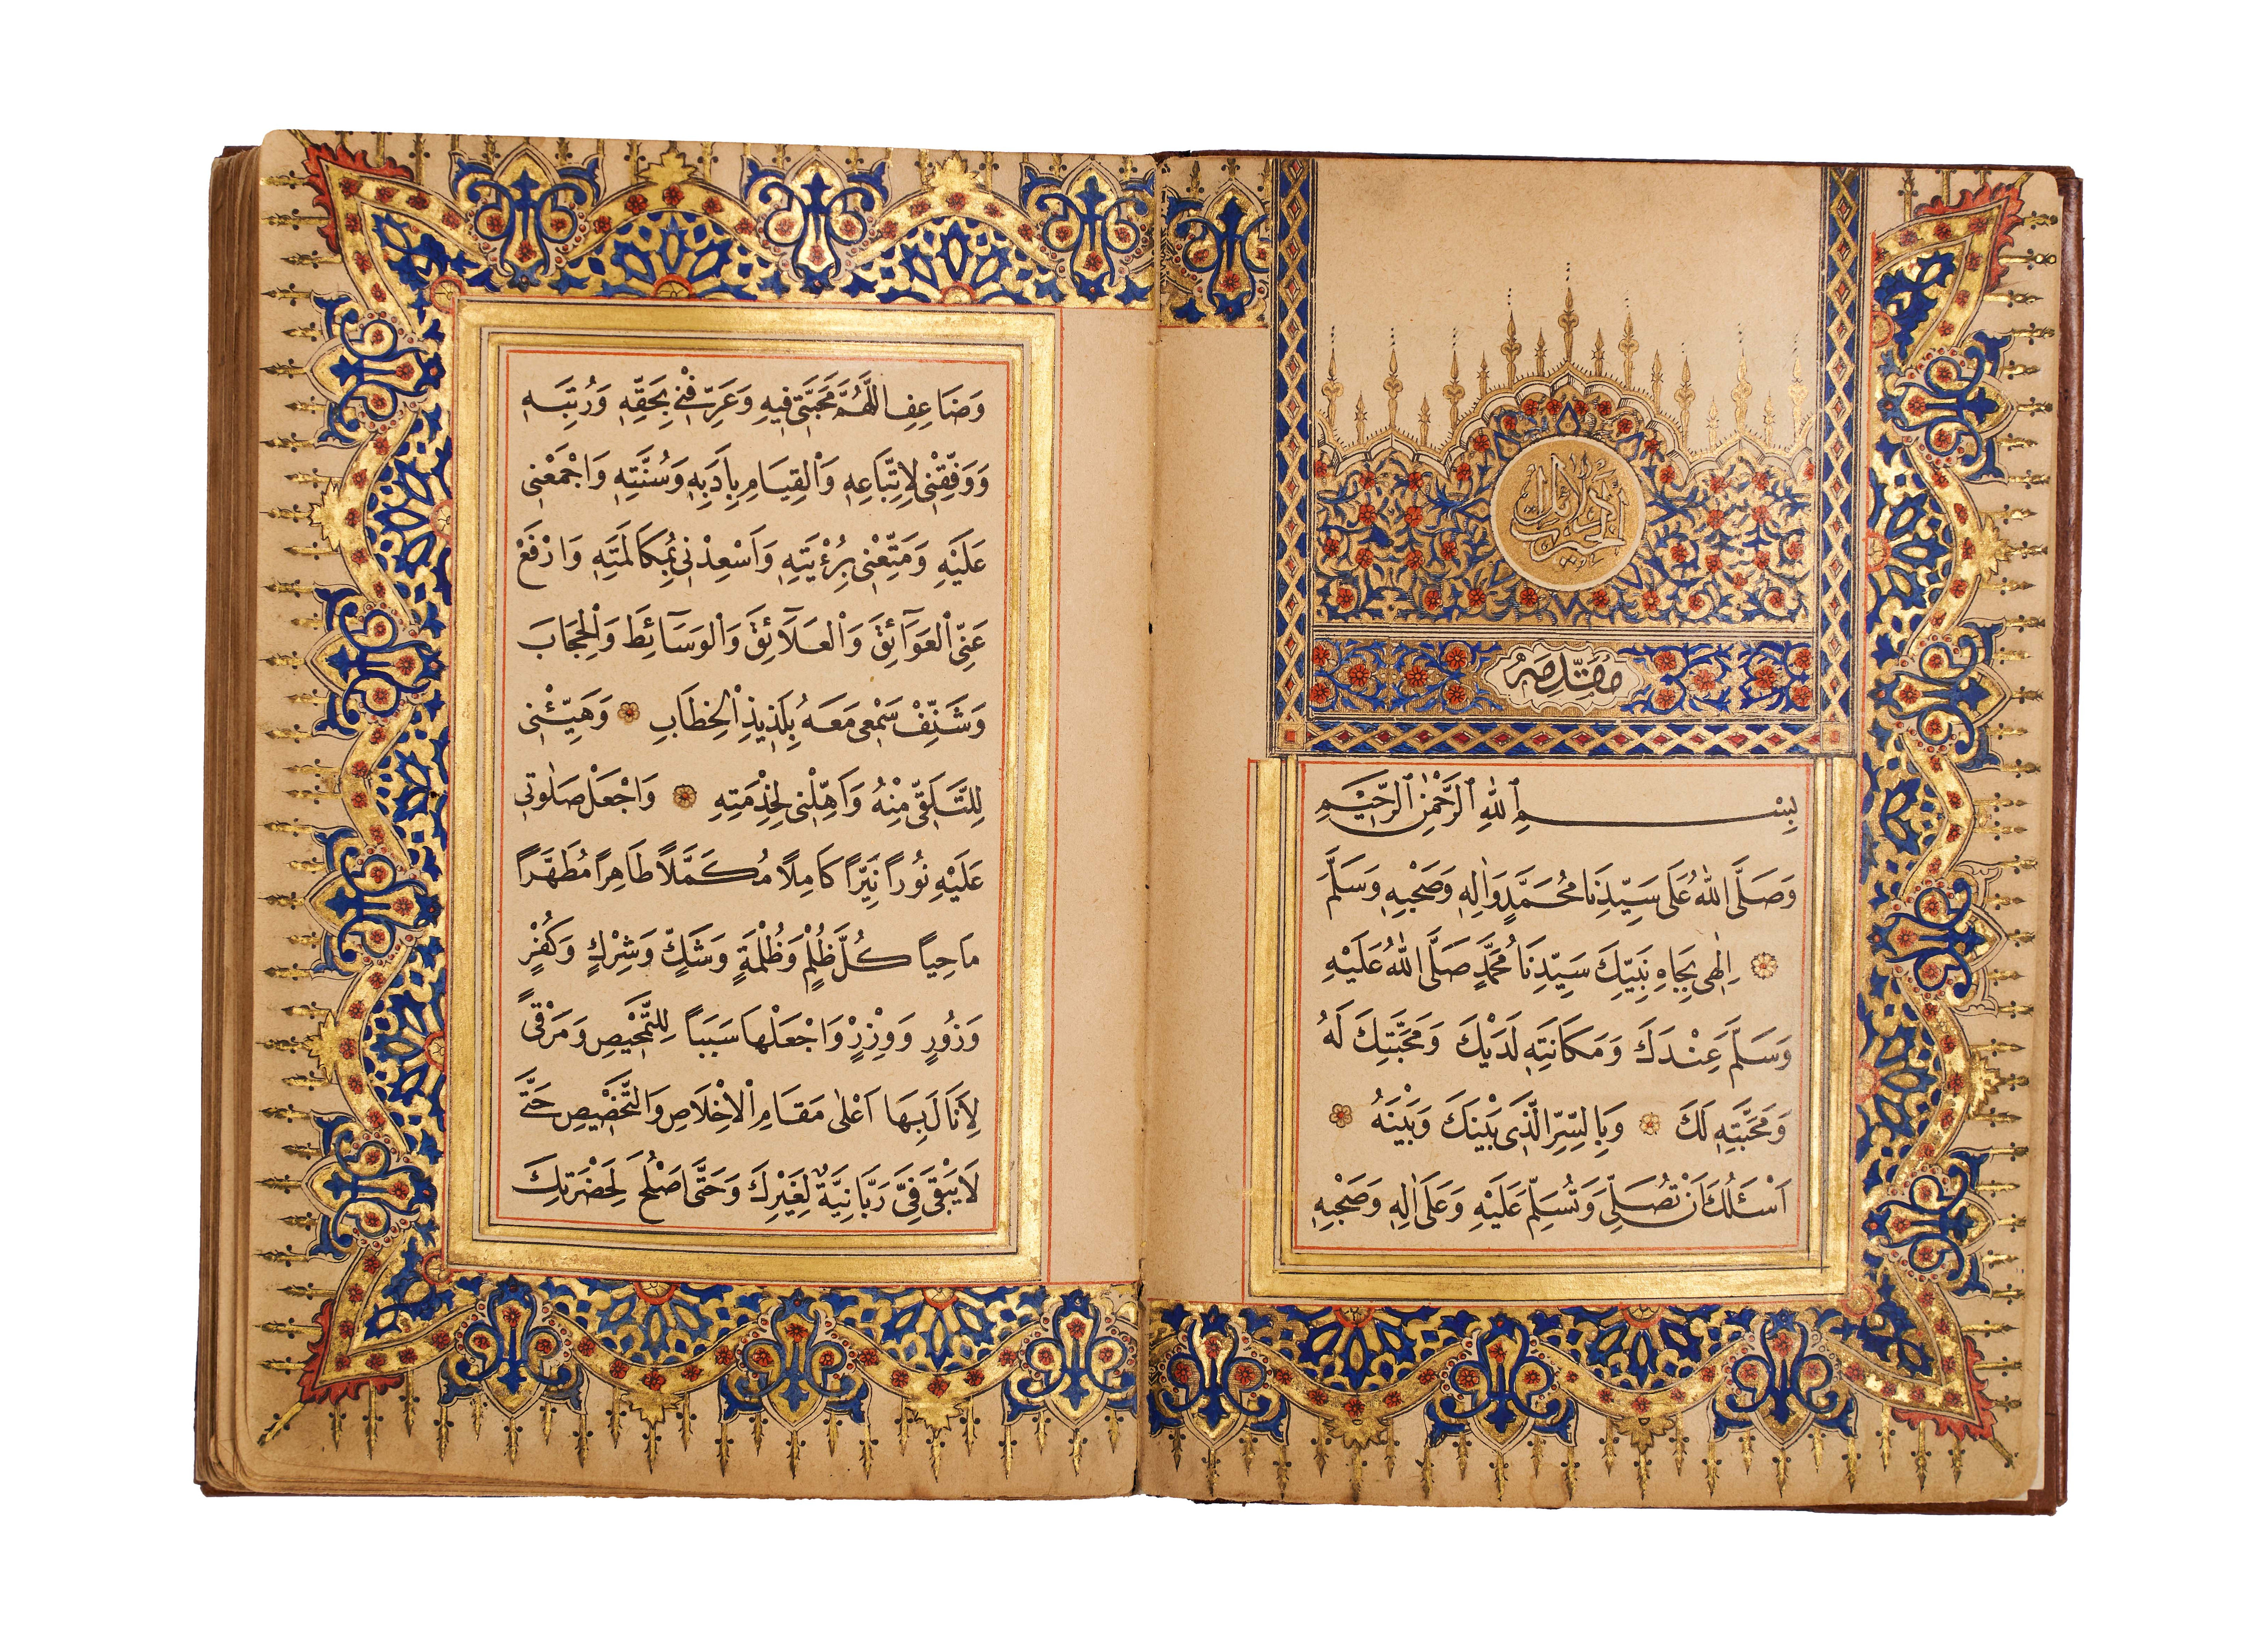 دلائل الخيرات
بِسْمِ ٱللهِ ٱلرَّحْمٰنِ ٱلرَّحِيْمِ
وَصَلَّى اللهُ عَلَى سَيِّدِنَا مُحَمَّدٍ وَاٰلِهِ وَصَحْبِهِ وَسَلَّمَ
اِلٰهِى بِجَاهِ نَبِيِّكَ سَيِّدِنَا مُحَمَّدٍ صَلَّى اللهُ عَلَيْهِ
وَسَلَّمَ عِنْدَكَ وَمَكَانَتِهِ لَدَيْكَ وَمَحَبَّتِكَ لَهُ
وَمَحَبَّتِهِ لَكَ وَبِالسِّرِّ الَّذِى بَيْنَكَ وَبَيْنَهُ
اَسْئَلُكَ اَنْ تُصَلِّىَ وَتُسَلِّمَ عَلَيْهِ وَعَلَى اٰلِهِ وَصَحْبِهِ
وَضَاعِفِ اللَّهُمَّ مَحَبَّتِى فِيهِ وَعَرِّفْنِى بِحَقِّهِ وَرُتَبِهِ
وَوَفِّقْنِى لِاِتِّبَاعِهِ وَاْلقِيَامِ بِاَدَبِهِ وَسُنَّتِهِ وَاجْمَعْنِى
عَلَيْهِ وَمَتِّعْنِى بِرُءْيَتِهِ وَاَسْعِدْنِى بِمُكَالَمَتِهِ وَارْفَعْ
عَنِّى اْلعَوَآئِقَ وَاْلعَلَآئِقَ وَاْلوَسَآئِطَ وَاْلحِجَابَ
وَشَنِّفْ سَمْعِى مَعَهُ بِلَذِيذِ اْلخِطَابِ وَهَيِّئْنِى
لِلتَّلَقِّى مِنْهُ وَاَهِّلْنِى لِخِذْمَتِهِ وَاجْعَلْ صَلٰوتِى
عَلَيْهِ نُورًا نَيِّرًا كَامِلًا مُكَمَّلًا طَاهِرًا مُطَهَّرًا
مَاحِيًا كُلَّ ظُلْمٍ وَظُلْمَةٍ وَشَكٍّ وَشِرْكٍ وَكُفْرٍ
وَزُورٍ وَوِزْرٍ وَاجْعَلْهَا سَبَبًا لِلتَّمْحِيصِ وَمَرْقًى
لِاَنَالَ بِهَا اَعْلٰى مَقَامِ اْلاِخْلَاصِ وَالتَّخْصِيصِ حَتَّى
لَا يَبْقَى فِىَّ رَبَّانِيَّةٌ لِغَيْرِكَ وَحَتَّى اَصْلُحَ لِحَضْرَتِكَ